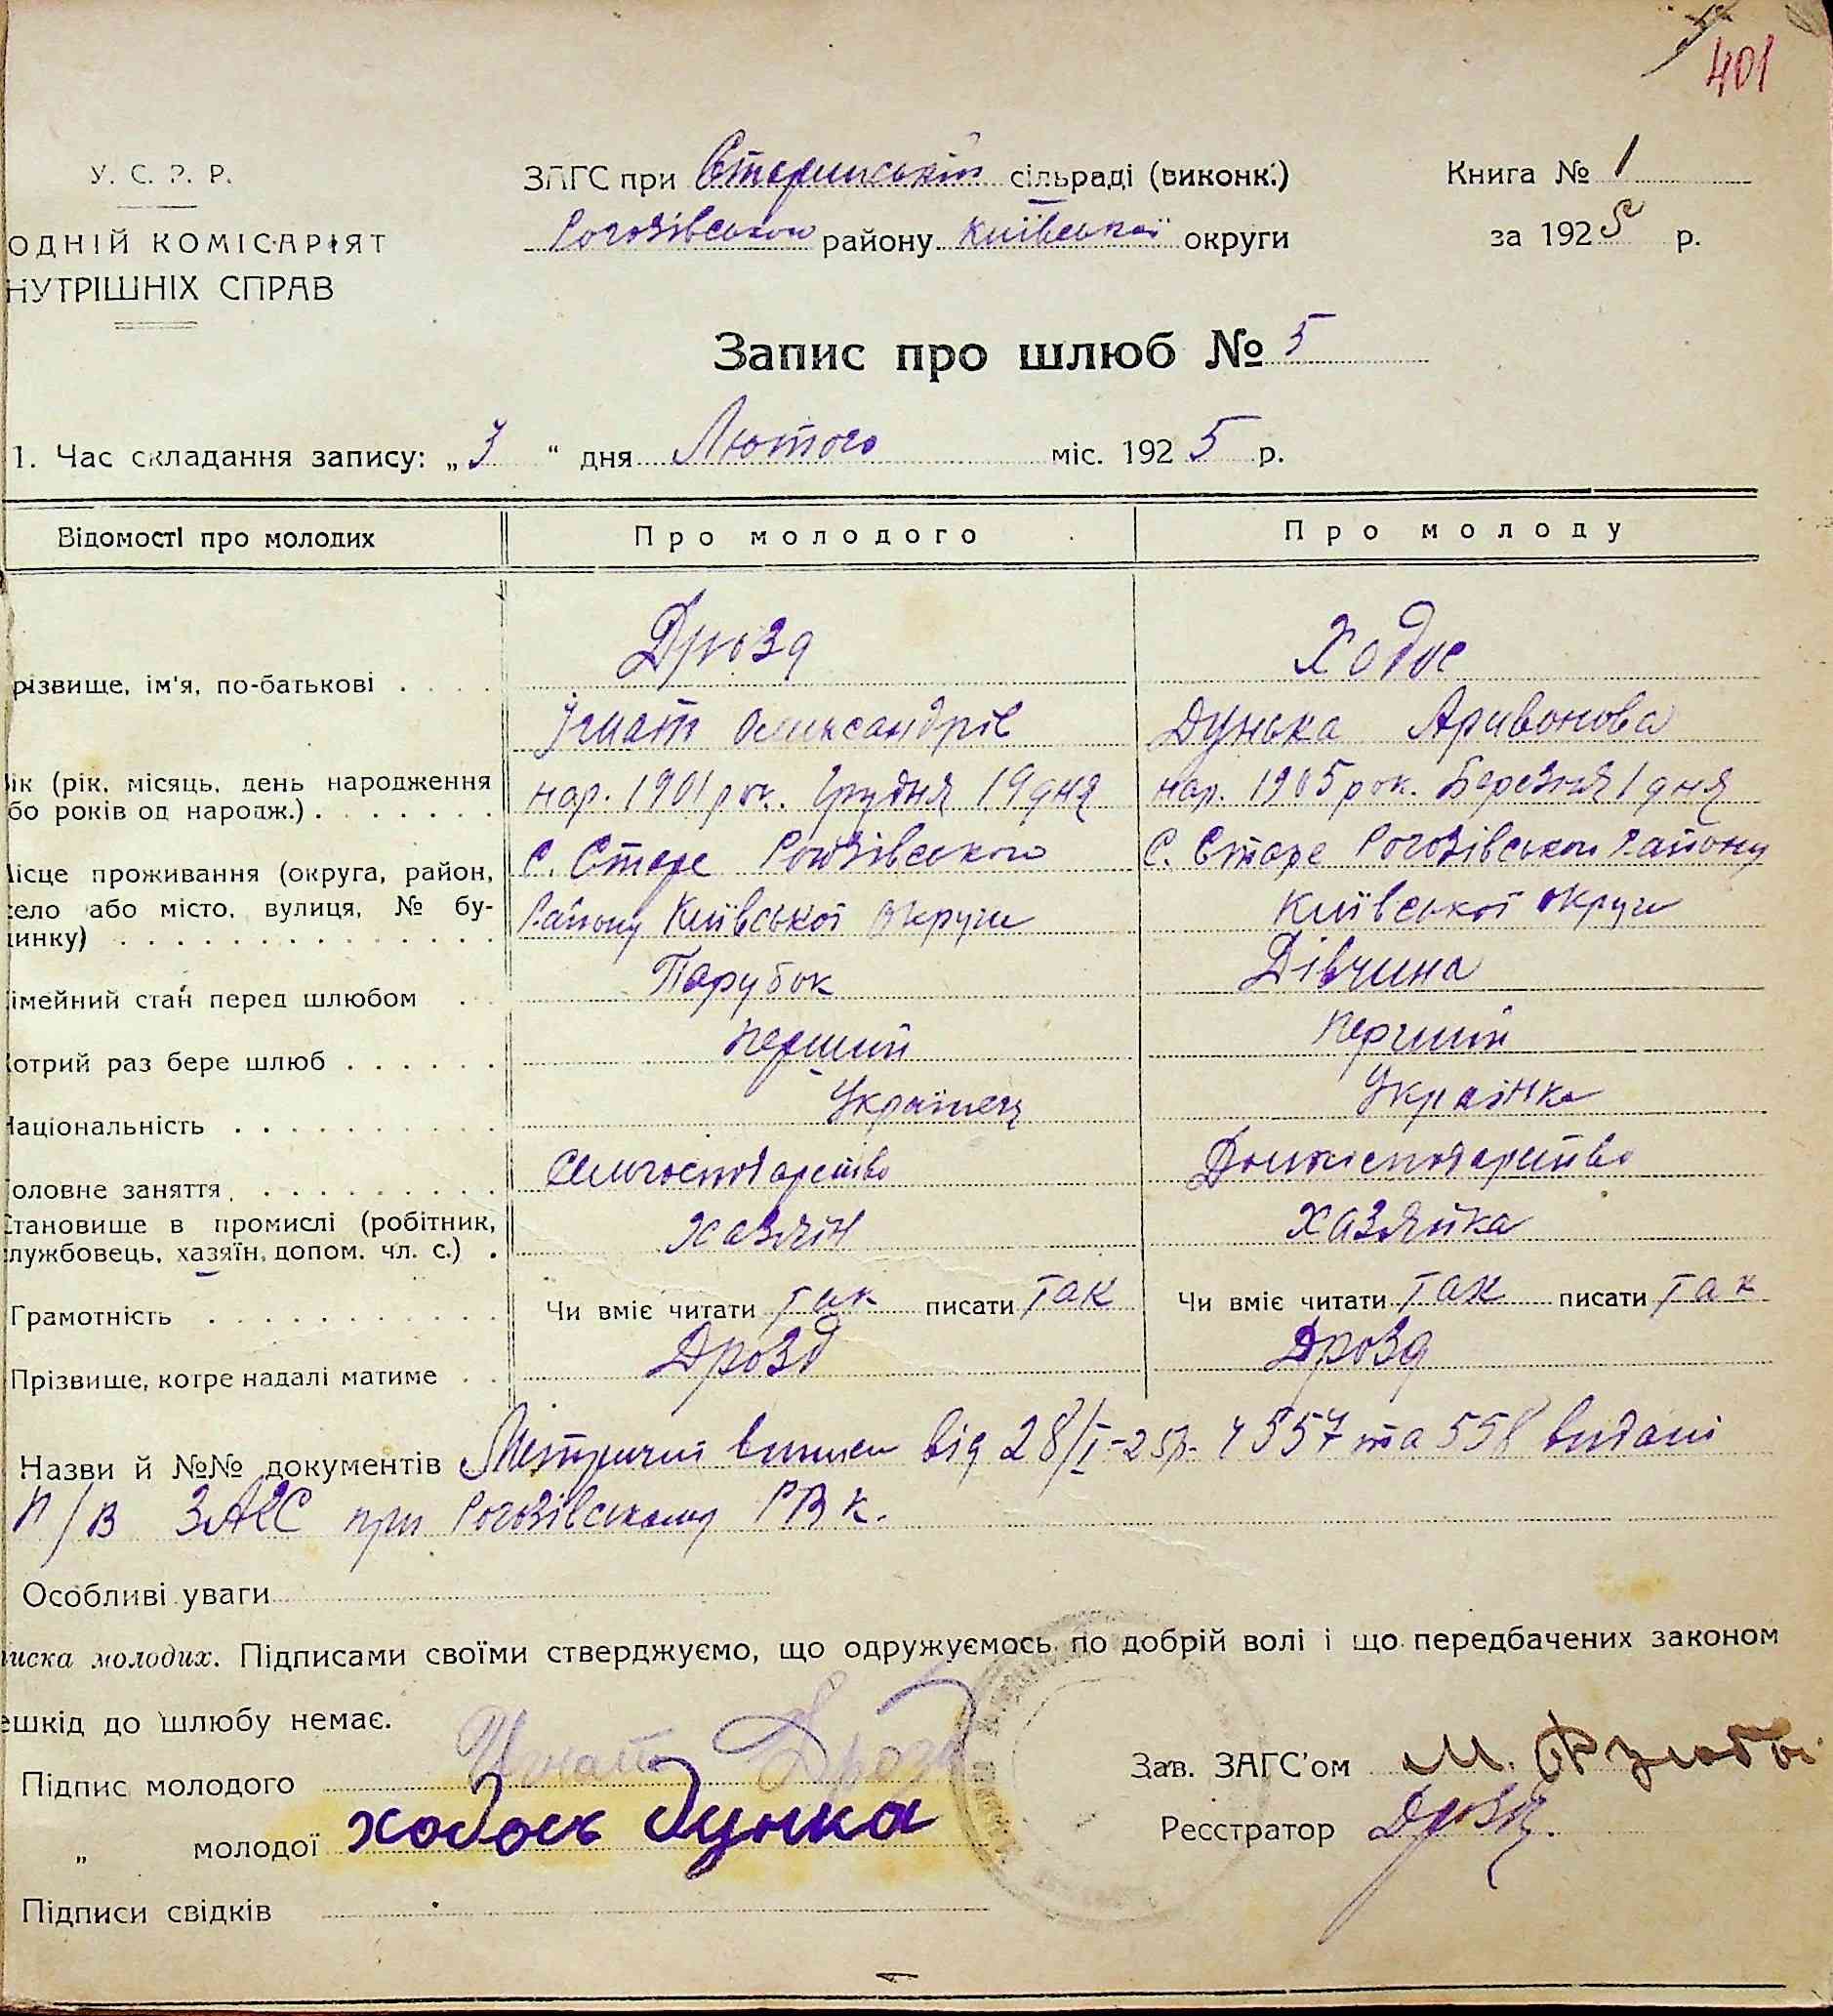 401
У. С. Р. Р.
ЗАГС при Старинській сільраді (виконк.)
Книга № 1
ОДНІЙ КОМІСАРІЯТ
Рогозівського району Київської округи
за 1925 р.
НУТРІШНІХ СПРАВ
Запис про шлюб № 5
1. Час складання запису: „3“ дня Лютого міс. 1925 р.
Відомості про молодих Про молодого Про молоду
різвище, ім'я, по-батькові Дрозд Ходос
Ігнат Олександрів Дунька Аривонова
ік (рік, місяць, день народження
бо років од народж.) нар. 1901 рок. Грудня 19 дня нар. 1905 рок. Березня 1 дня
ісце проживання (округа, район, С. Старе Рогозівського С. Старе Рогозівського Району
село або місто, вулиця, № бу- Району Київської округи Київської округи
динку)
імейний стан перед шлюбом Парубок Дівчина
котрий раз бере шлюб перший перший
Національність Українець Українка
оловне заняття Сільгосподарство Домогосподарство
Становище в промислі (робітник,
службовець, хазяїн, допом. чл. с.) хазяїн хазяйка
Грамотність Чи вміє читати так писати так Чи вміє читати так писати так
Прізвище, котре надалі матиме Дрозд Дрозд
Назви й №№ документів Метричні виписи від 28/I-25р. ч 557 та 558 видані
П/В ЗАГС при Рогозівському РВК.
Особливі уваги
иска молодих. Підписами своїми стверджуємо, що одружуємось по добрій волі і що передбачених законом
ешкід до шлюбу немає.
Підпис молодого Игнат Дрозд
Зав. ЗАГС'ом М.
„ молодої ходось дунка
Реєстратор Дрозд
Підписи свідків